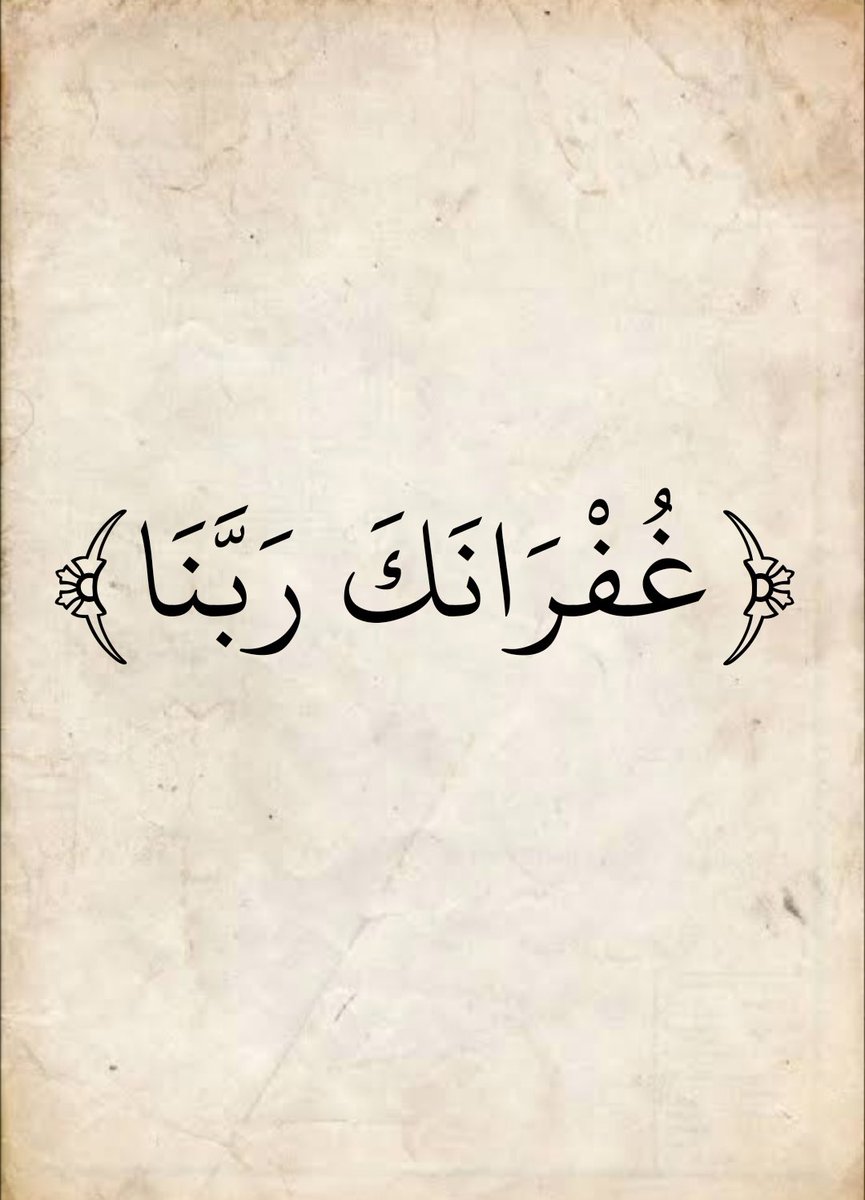 ﴿ غُفْرَانَكَ رَبَّنَا ﴾